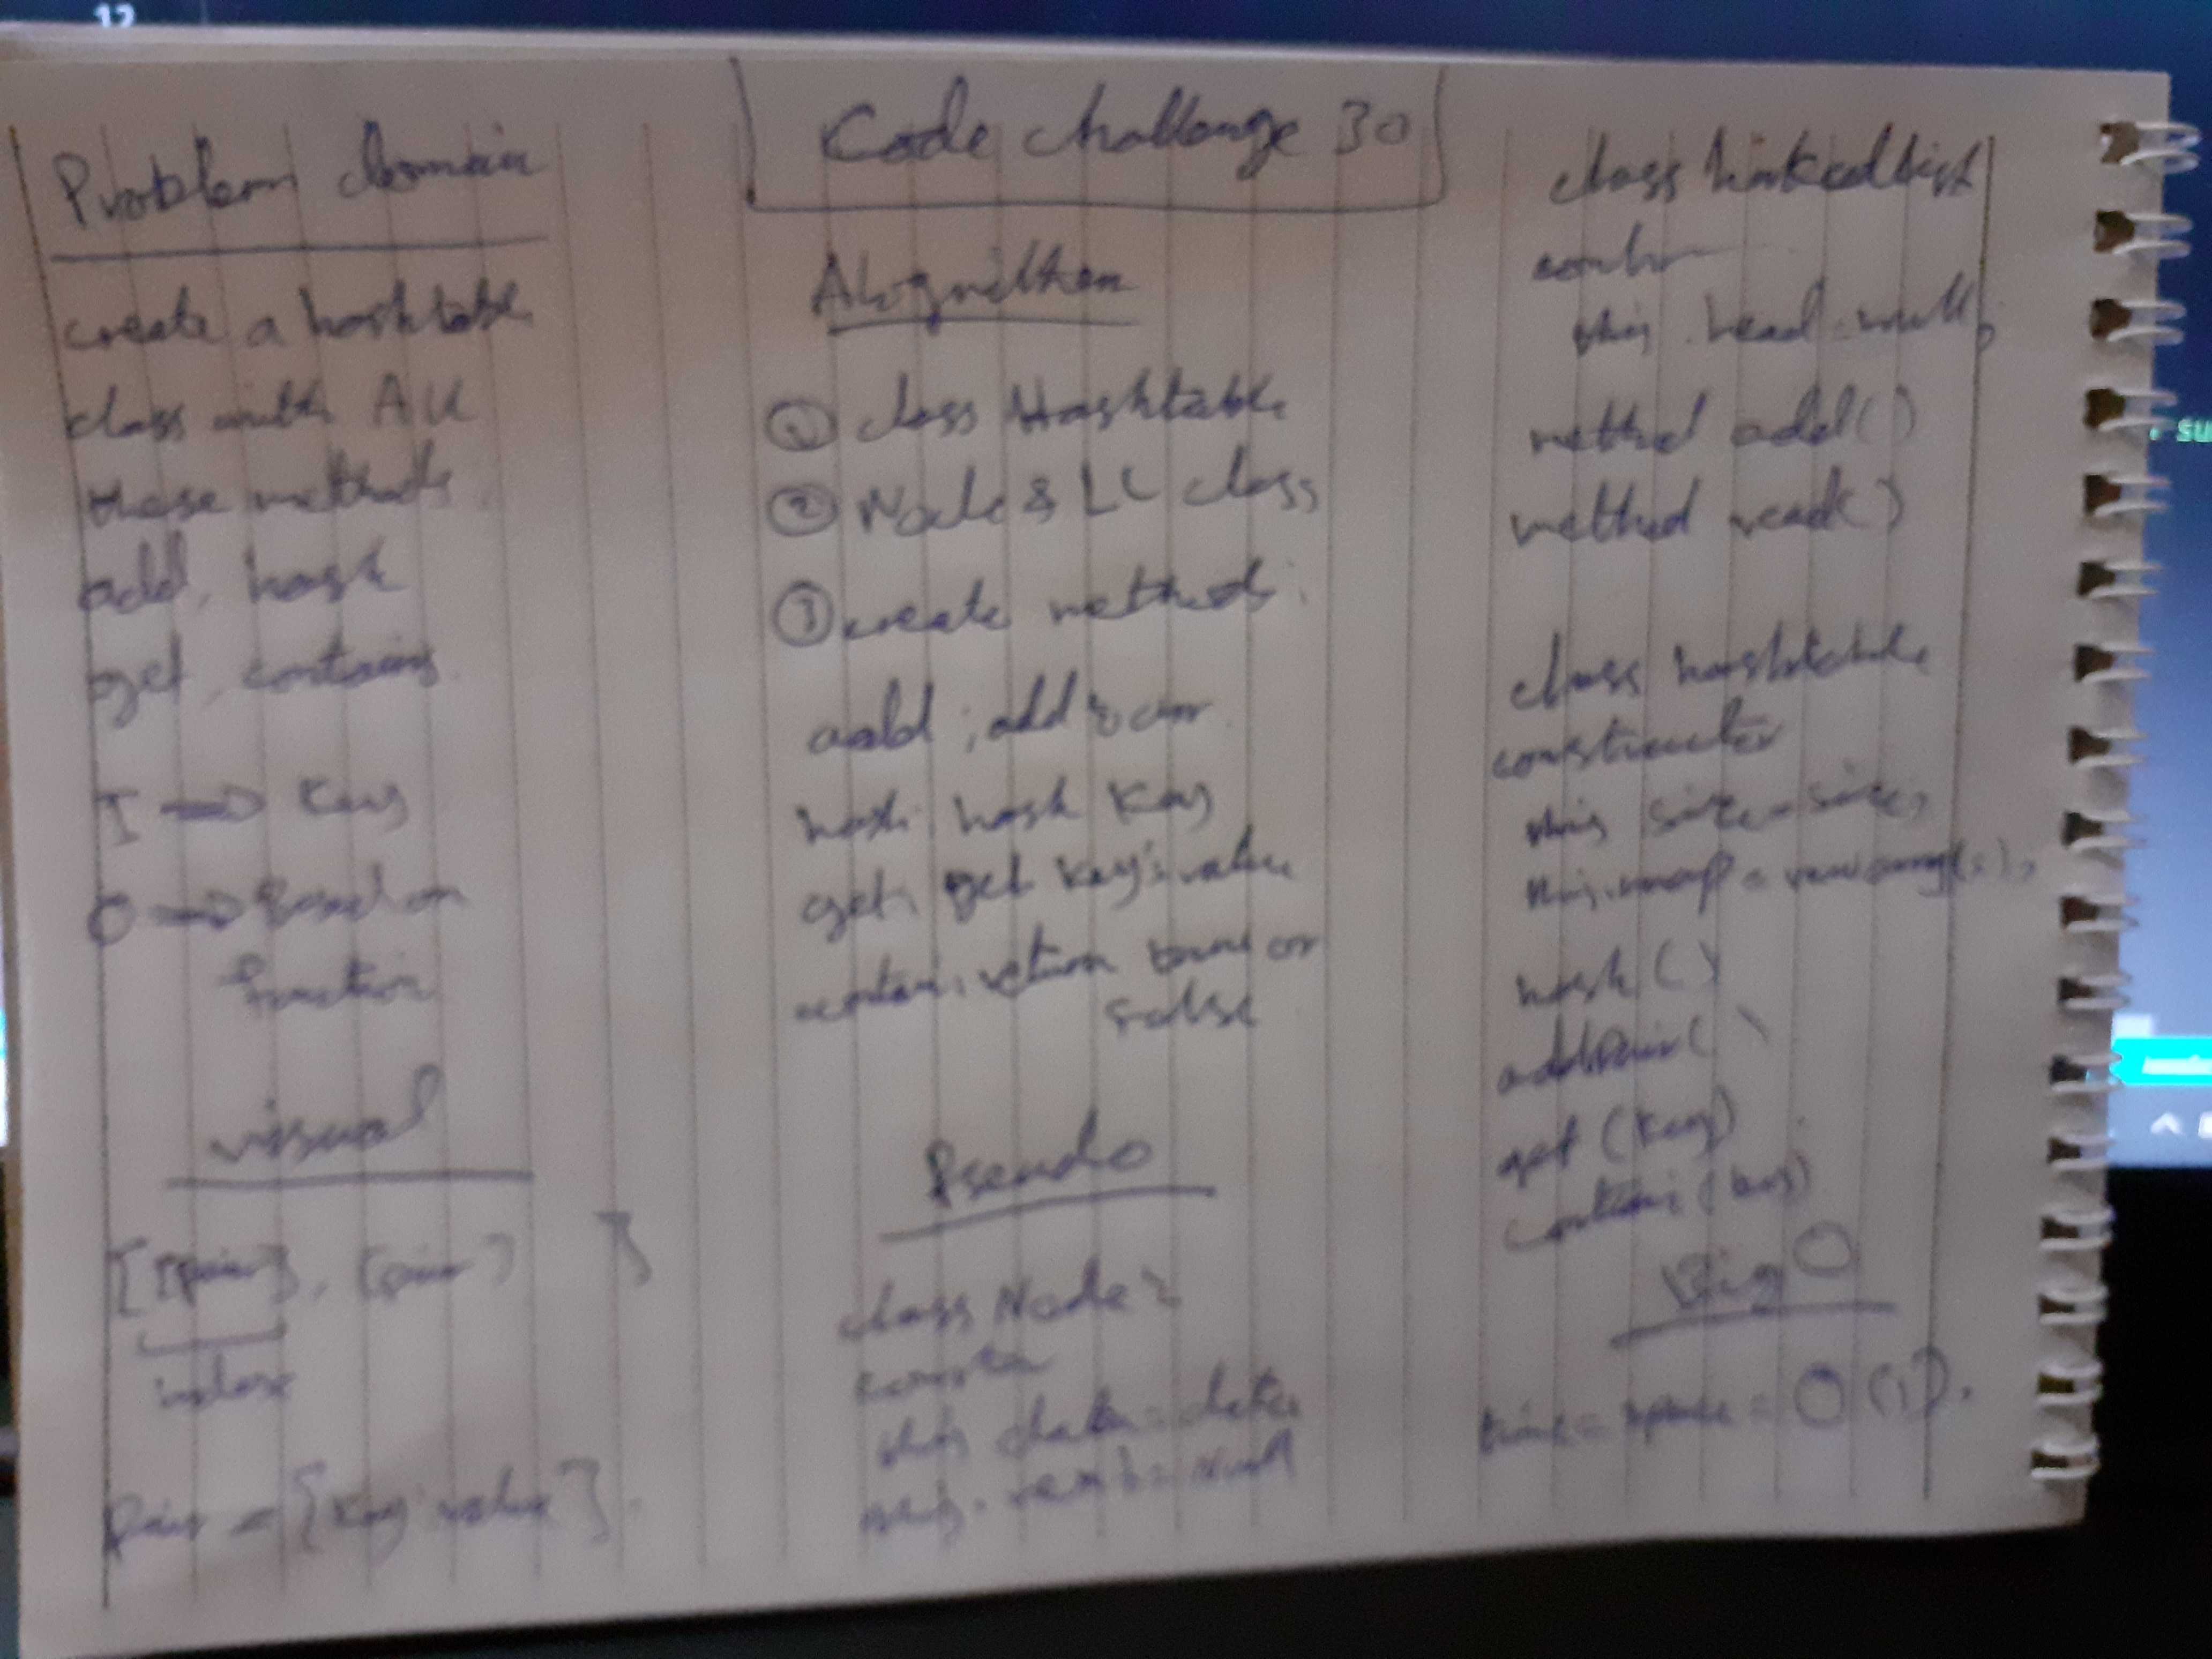 12
Code challenge 30
Problem domain
create a hashtable
class with All
these methods.
add, hash
get, contains.
I => Key
O => Based on
function
visual
[[pair], [pair] ]
index
Pair = [Key value].
Alogrithem
① class Hashtable
② Node & LL class
③ create methods:
add ; add
hash: hash Key
get: get key's value
contain: return or
false
Pseudo
class Node
this data = data
this. next = Null
class linkedlist
this. head = null;
method add()
method read()
class hashtable
constructer
this size = size;
this.map =
hash()
addPair( )
get (Key)
contain (key)
Big O
time = space = O(1).
su